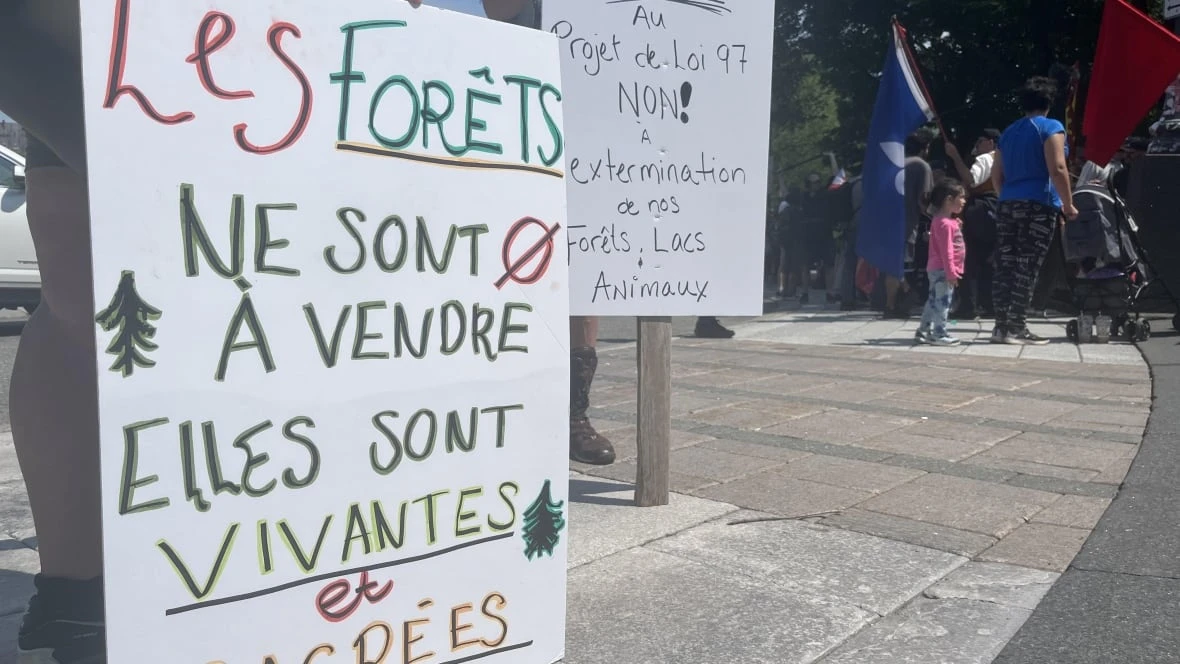 Les FORÊTS
NE SONT
À VENDRE
ELLES SONT
VIVANTES
et
SACRÉES
Au
Projet de Loi 97
NON!
À
extermination
de nos
Forêts, Lacs
Animaux